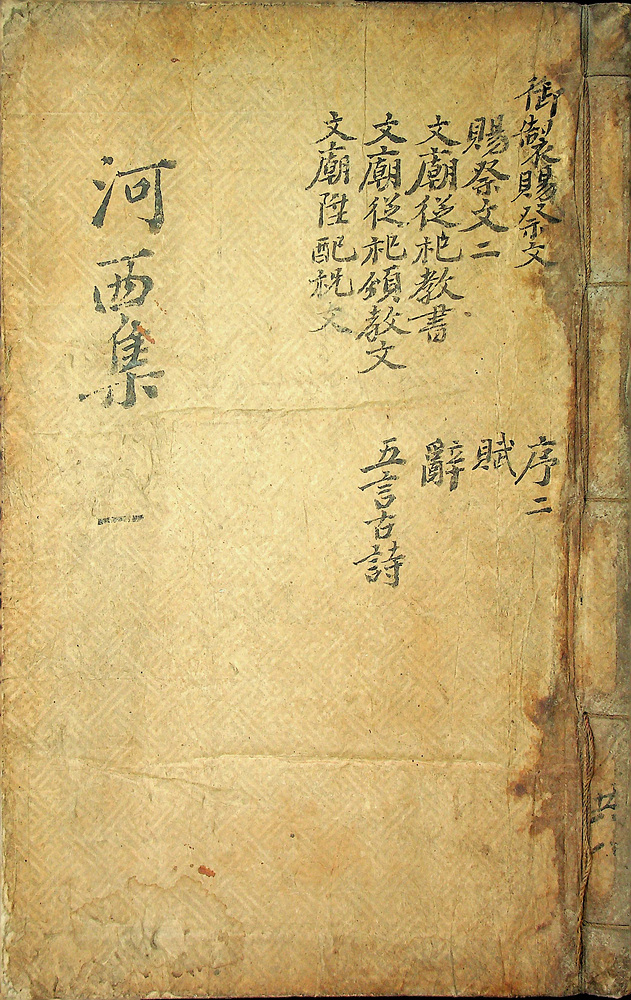 御製賜祭文
賜祭文二
文廟從祀教書
文廟從祀頒教文
文廟陞配祝文
序二
賦
辭
五言古詩
河西集
一
共